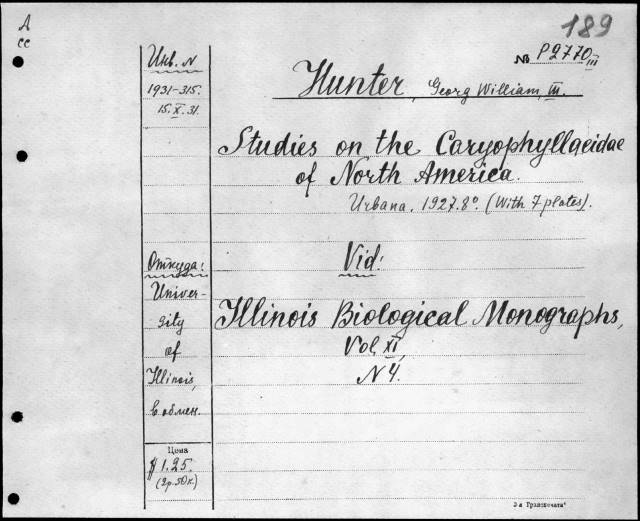 А
сс
189
№ P2770 III
Инв. N
1931-315.
15.X.31.
Hunter, Georg William, III.
Studies on the Caryophyllaeidae
of North America.
Urbana, 1927. 8º. (With 7 plates).
Откуда:
Univer-
sity
of
Illinois,
в обмен.
Vid:
Illinois Biological Monographs,
Vol. XI,
N 4.
Цена
$ 1.25.
(2р. 50к.)
3-я Гранпечать